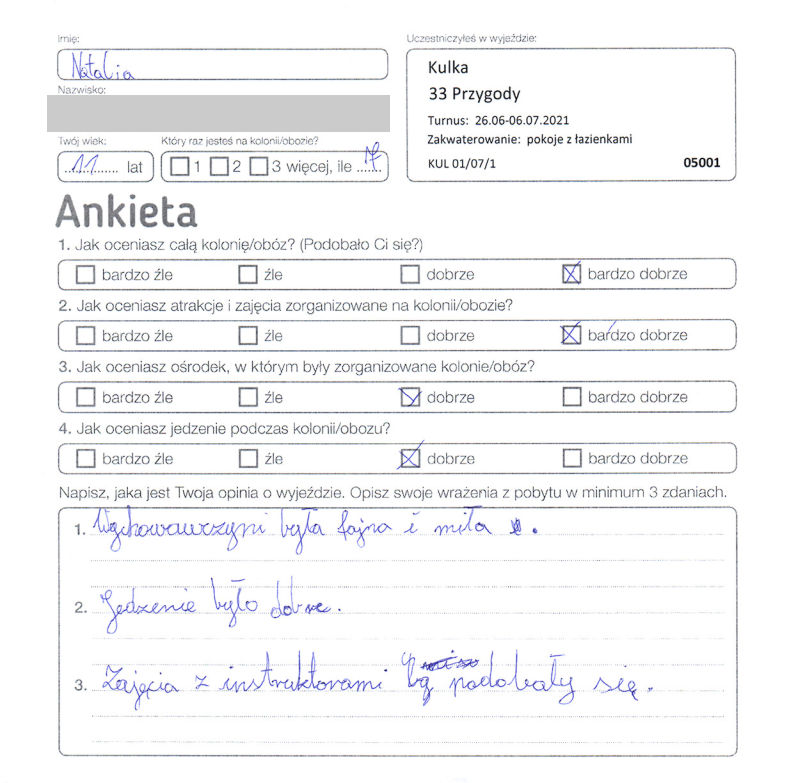 Imię:
Natalia
Nazwisko:
Twój wiek:
11 lat
Który raz jesteś na kolonii/obozie?
1 2 3 więcej, ile
Uczestniczyłeś w wyjeździe:
Kulka
33 Przygody
Turnus: 26.06-06.07.2021
Zakwaterowanie: pokoje z łazienkami
KUL 01/07/1 05001
Ankieta
1. Jak oceniasz całą kolonię/obóz? (Podobało Ci się?)
bardzo źle źle dobrze bardzo dobrze
2. Jak oceniasz atrakcje i zajęcia zorganizowane na kolonii/obozie?
bardzo źle źle dobrze bardzo dobrze
3. Jak oceniasz ośrodek, w którym były zorganizowane kolonie/obóz?
bardzo źle źle dobrze bardzo dobrze
4. Jak oceniasz jedzenie podczas kolonii/obozu?
bardzo źle źle dobrze bardzo dobrze
Napisz, jaka jest Twoja opinia o wyjeździe. Opisz swoje wrażenia z pobytu w minimum 3 zdaniach.
1. Wychowawczyni była fajna i miła.
2. Jedzenie było dobre.
3. Zajęcia z instruktorami podobały się.